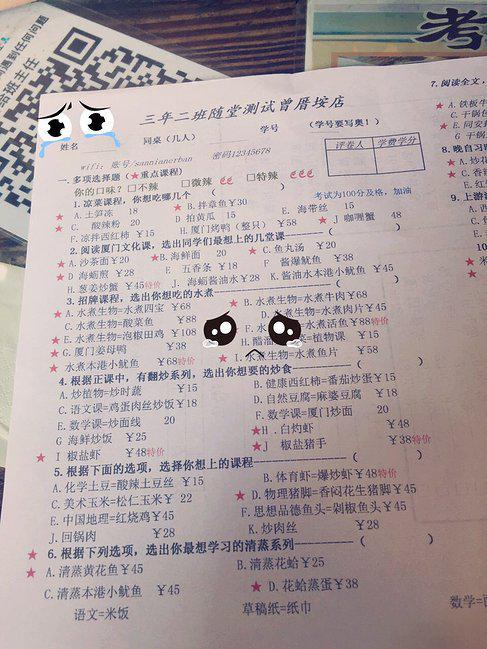 考
遇到任何问题
给班主任
三年二班随堂测试曾厝垵店
姓名 同桌（几人） 学号 （学号要写奥！）
评卷人 学费学分
wifi：账号/sanniannerban 密码12345678
一.多项选择题（★重点课程）
你的口味？□不辣 □微辣 □特辣
1.凉菜课程，你想吃哪几个（ ） 考试为100分及格，加油
A.土笋冻 18 ★B.拌章鱼￥30
★C. 酸辣粉 20 D 拍黄瓜 15 E. 海带丝 15
F.凉拌西红柿 ￥15 H.厦门烤鸭（整只）￥58 ★J 咖喱蟹 48
2.阅读厦门文化课，选出同学们最想上的几堂课------------（ ）
★A 沙茶面￥20 ★B.海鲜面 20 C.鱼丸汤 ￥20
★D 海蛎煎 ￥28 E 五香条 ￥18 F 酱爆鱿鱼 ￥38
H.葱姜炒蟹 ￥45特价 J. 海蛎酱油水￥28 K.酱油水本港小鱿鱼 ￥45
3.招牌课程，选出你想吃的水煮------------（ ）
★A.水煮生物=水煮四宝 ￥68 B.水煮生物=水煮牛肉￥68
C.水煮生物=酸菜鱼 ￥88 D.水煮生物=水煮肉片￥45
★E.水煮生物=泡椒田鸡 ￥108 F.水煮生物=水煮活鱼￥88特价
★G.厦门姜母鸭 ￥38 H.醋溜 =植物课 ￥15
水煮本港小鱿鱼 ￥68特价 ★I.水煮生物=水煮鱼片 ￥58
4.根据正课中，有翻炒系列，选出你想要的炒食------------（ ）
A.炒植物=炒时蔬 ￥15 B.健康西红柿=番茄炒蛋￥15
C.语文课=鸡蛋肉丝炒饭￥18 D.自然豆腐=麻婆豆腐 ￥18
E.数学课=炒面线 ￥20 F.数学课=厦门炒面 20
G 海鲜炒饭 ￥25 ★H .白灼虾 ￥48
★I 椒盐虾 ￥48特价 ★J 椒盐猪手 ￥38特价
5.根据下面的选项，选择你想上的课程------------（ ）
A.化学土豆=酸辣土豆丝 ￥15 B.体育虾=爆炒虾￥48特价
C.美术玉米=松仁玉米￥ 22 ★D.物理猪脚=香闷花生猪脚￥45
E.中国地理=红烧鸡￥45 F.思想品德鱼头=剁椒鱼头￥45
J.回锅肉 ￥28 K.炒肉丝 ￥28
★6.根据下列选项，选出你最想学习的清蒸系列------------（ ）
★A.清蒸黄花鱼￥45 B.清蒸花蛤￥25
C.清蒸本港小鱿鱼 ￥45 ★D.花蛤蒸蛋￥38
语文=米饭 草稿纸=纸巾 数学=
7.阅读全文，
★A.铁板牛
C.干锅
★E.同安
G 干锅
8.晚自习
9.上游
10